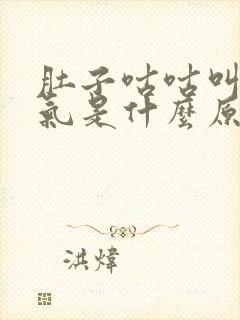 肚子咕咕叫
氣是什麼原
洪煒